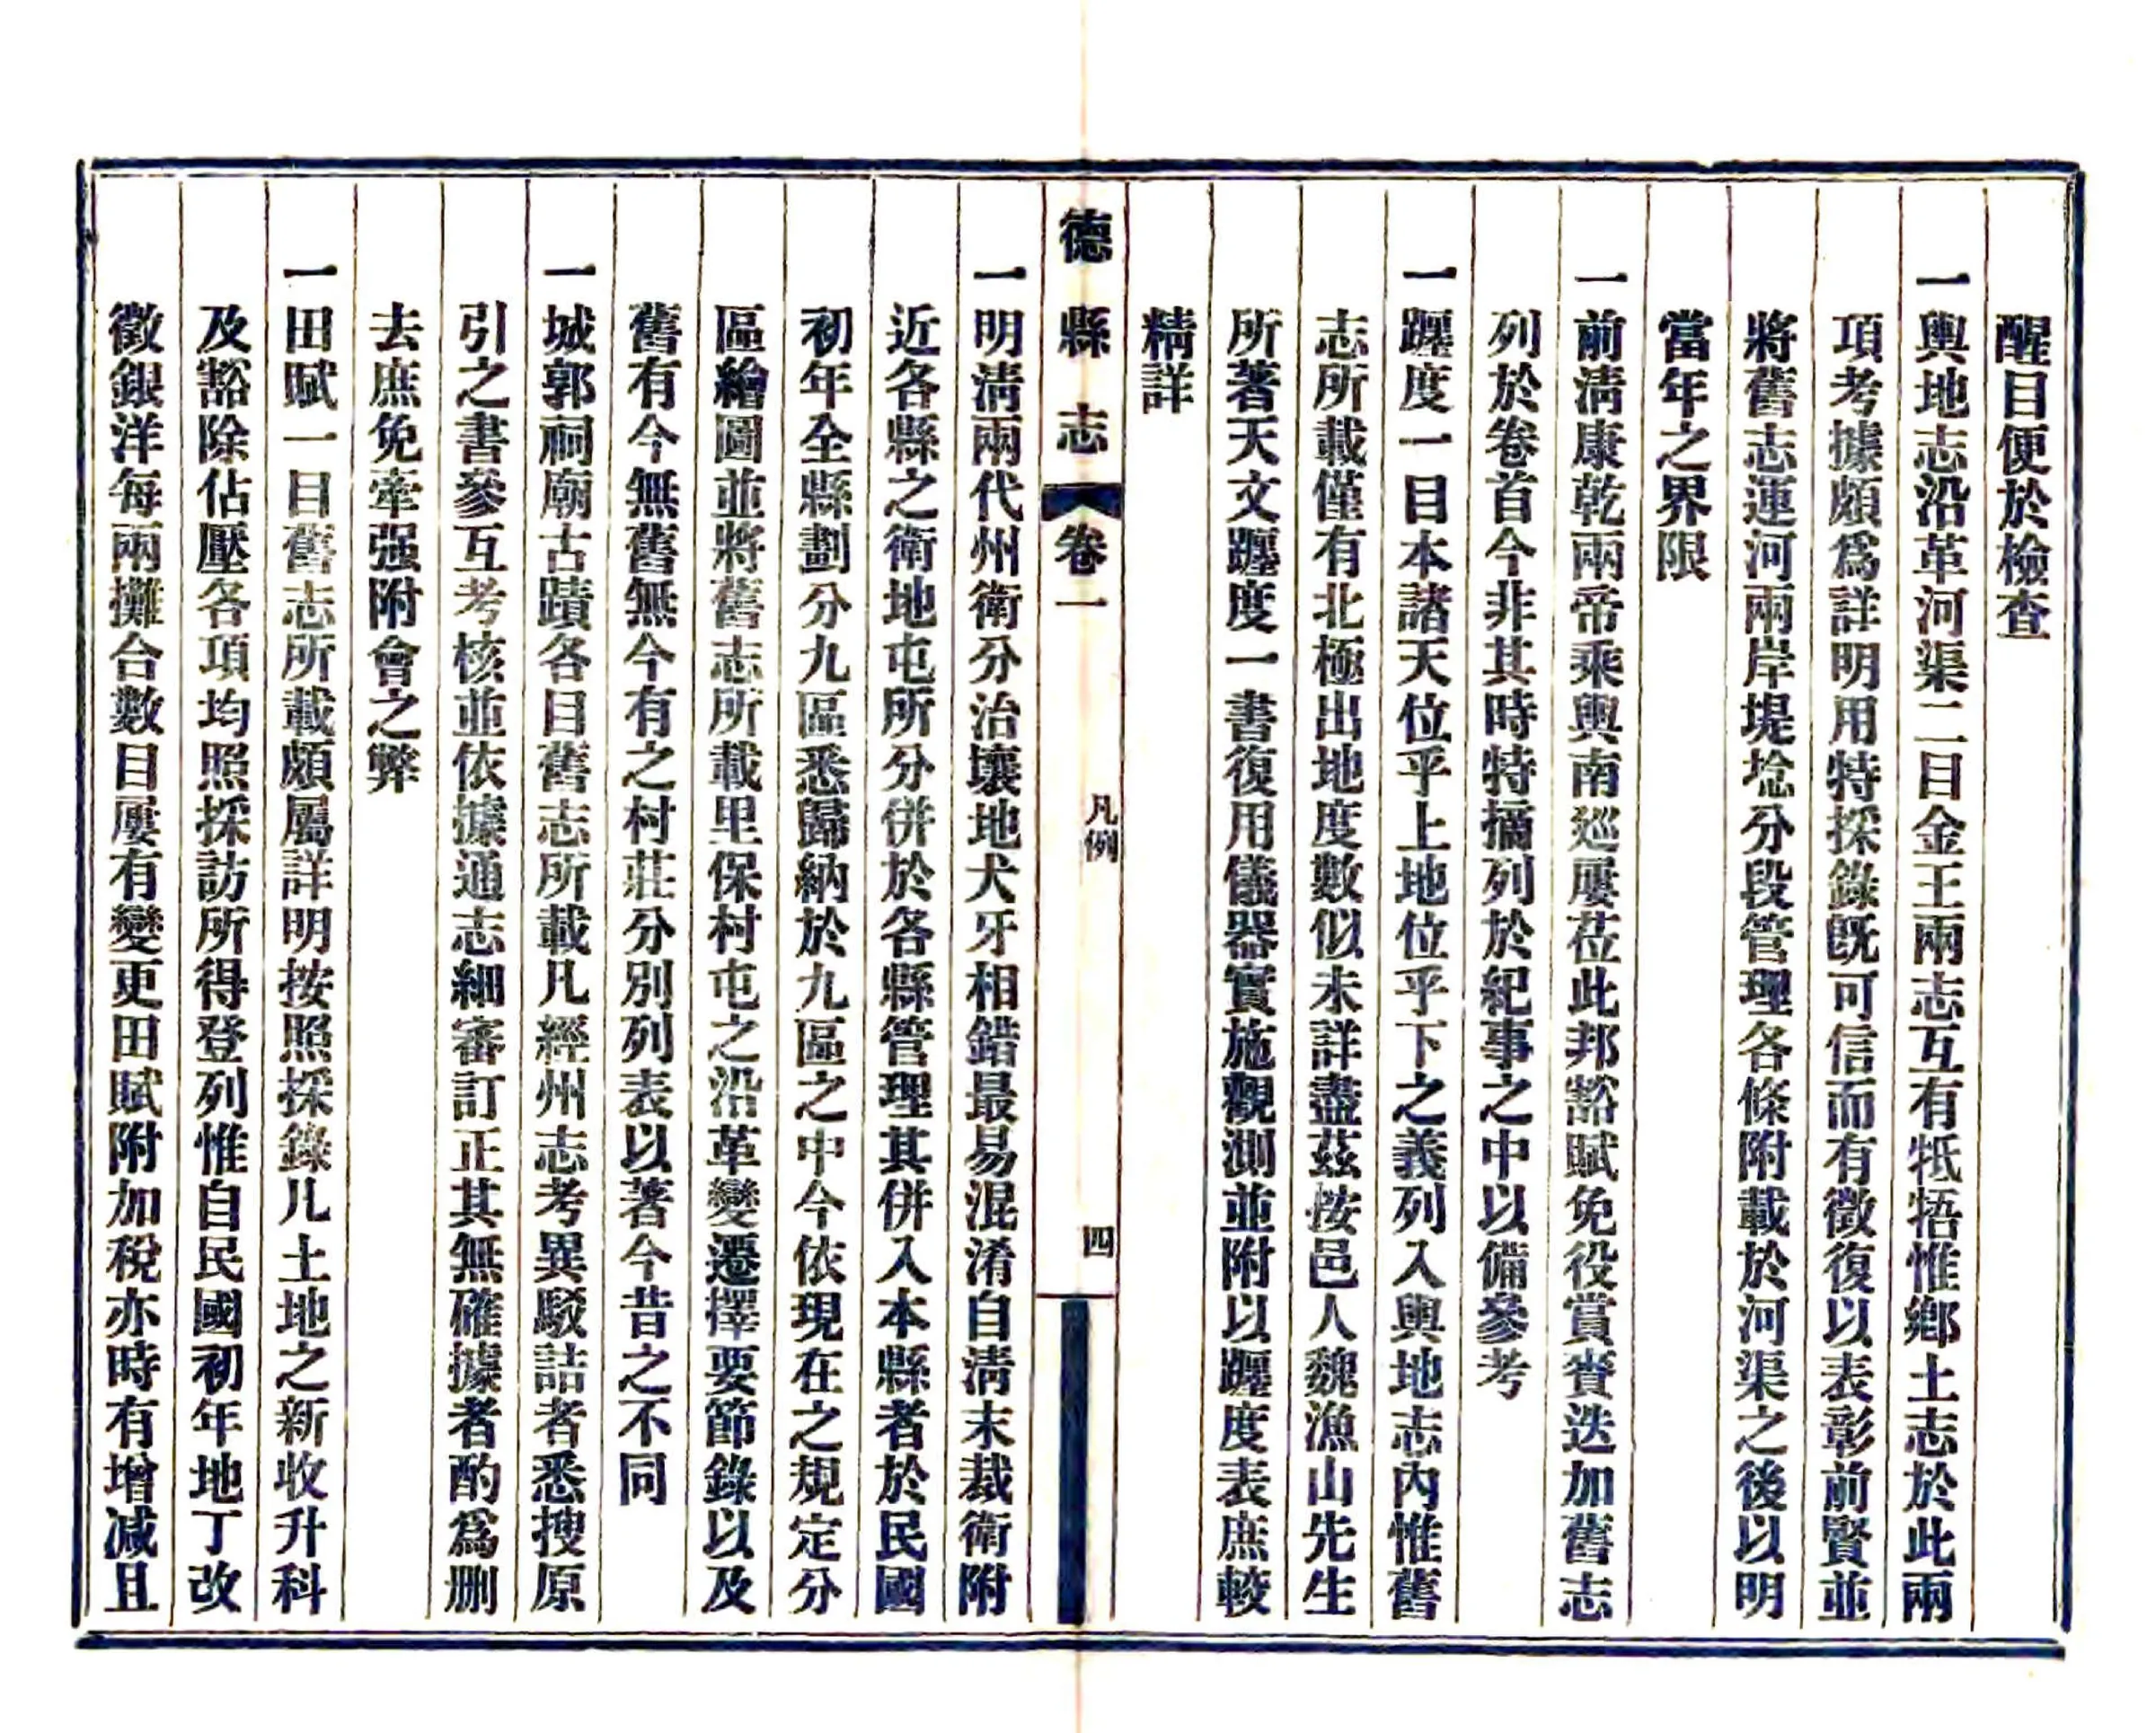 醒目便於檢查
一輿地志沿革河渠二目金王兩志互有牴牾惟鄉土志於此兩
項考據頗爲詳明用特採錄旣可信而有徵復以表彰前賢並
將舊志運河兩岸堤埝分段管理各條附載於河渠之後以明
當年之界限
一前淸康乾兩帝乘輿南巡屢莅此邦豁賦免役賞賚迭加舊志
列於卷首今非其時特摘列於紀事之中以備參考
一躔度一目本諸天位乎上地位乎下之義列入輿地志內惟舊
志所載僅有北極出地度數似未詳盡茲按邑人魏漁山先生
所著天文躔度一書復用儀器實施觀測並附以躔度表庶較
精詳
德縣志 卷一 凡例 四
一明淸兩代州衛分治壤地犬牙相錯最易混淆自淸末裁衛附
近各縣之衛地屯所分併於各縣管理其併入本縣者於民國
初年全縣劃分九區悉歸納於九區之中今依現在之規定分
區繪圖並將舊志所載里保村屯之沿革變遷擇要節錄以及
舊有今無舊無今有之村莊分別列表以著今昔之不同
一城郭祠廟古蹟各目舊志所載凡經州志考異駁詰者悉搜原
引之書參互考核並依據通志細審訂正其無確據者酌爲删
去庶免牽强附會之弊
一田賦一目舊志所載頗屬詳明按照採錄凡土地之新收升科
及豁除佔壓各項均照採訪所得登列惟自民國初年地丁改
徵銀洋每兩攤合數目屢有變更田賦附加稅亦時有增減且